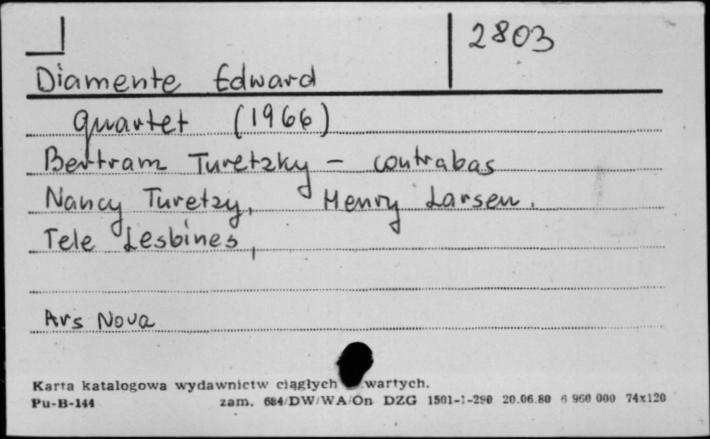 2803
Diamente Edward
Quartet (1966)
Bertram Turetzky – contrabas
Nancy Turetzy, Henry Larsen.
Tele Lesbines,
Ars Nova
Karta katalogowa wydawnictw ciągłych wartych.
Pu-B-144 zam. 684/DW/WA/On DZG 1501-1-290 20.06.80 6 960 000 74x120